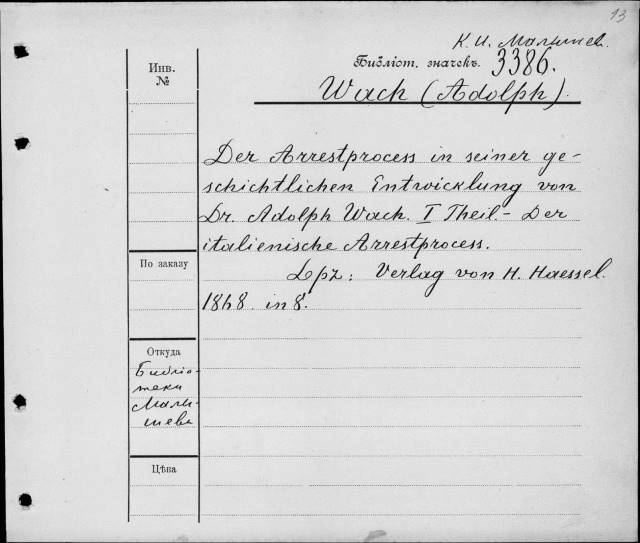 13
К. И. Малышев.
Библіот. значекъ. 3386.
Wach (Adolph).
Инв.
№
Der Arrestprocess in seiner ge-
schichtlichen Entwicklung von
Dr. Adolph Wach. I Theil. - Der
italienische Arrestprocess.
По заказу
Lpz: Verlag von H. Haessel.
1868. in 8.
Откуда
Библіо-
теки
Малы-
шева
Цѣна